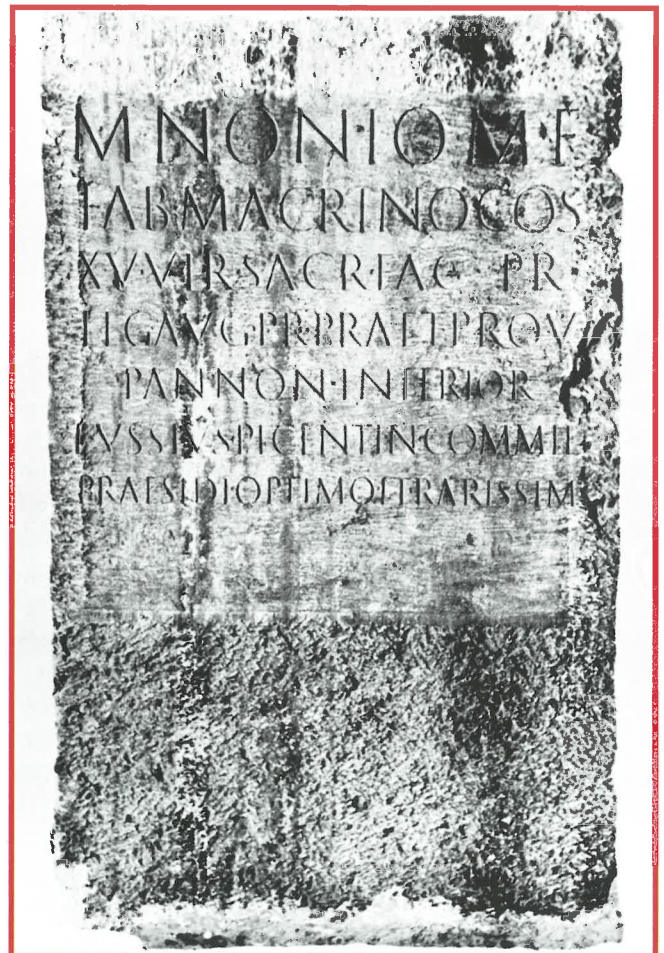 M·NONIO·M·F
FAB·MACRINO·COS
XV·VIR·SACR·FAC PR
LEG·AVG·PR·PR·PRAET·PROV
PANNON·INFERIOR
PICENTIN·COMMIL
PRAESIDI·OPTIMO·ET·RARISSIM